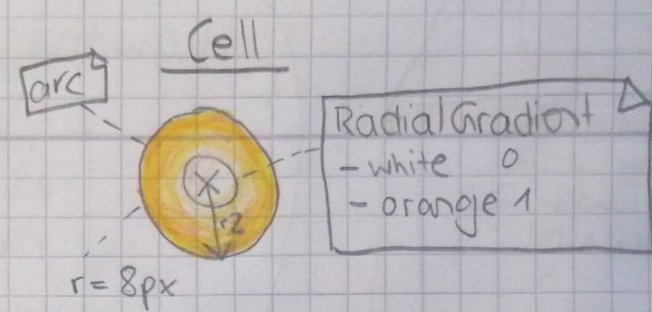 Cell
arc
RadialGradient
- white 0
- orange 1
x
r2
r = 8px